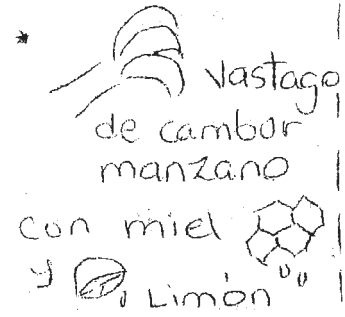 Vastago
de cambur
manzano
con miel
y Limón